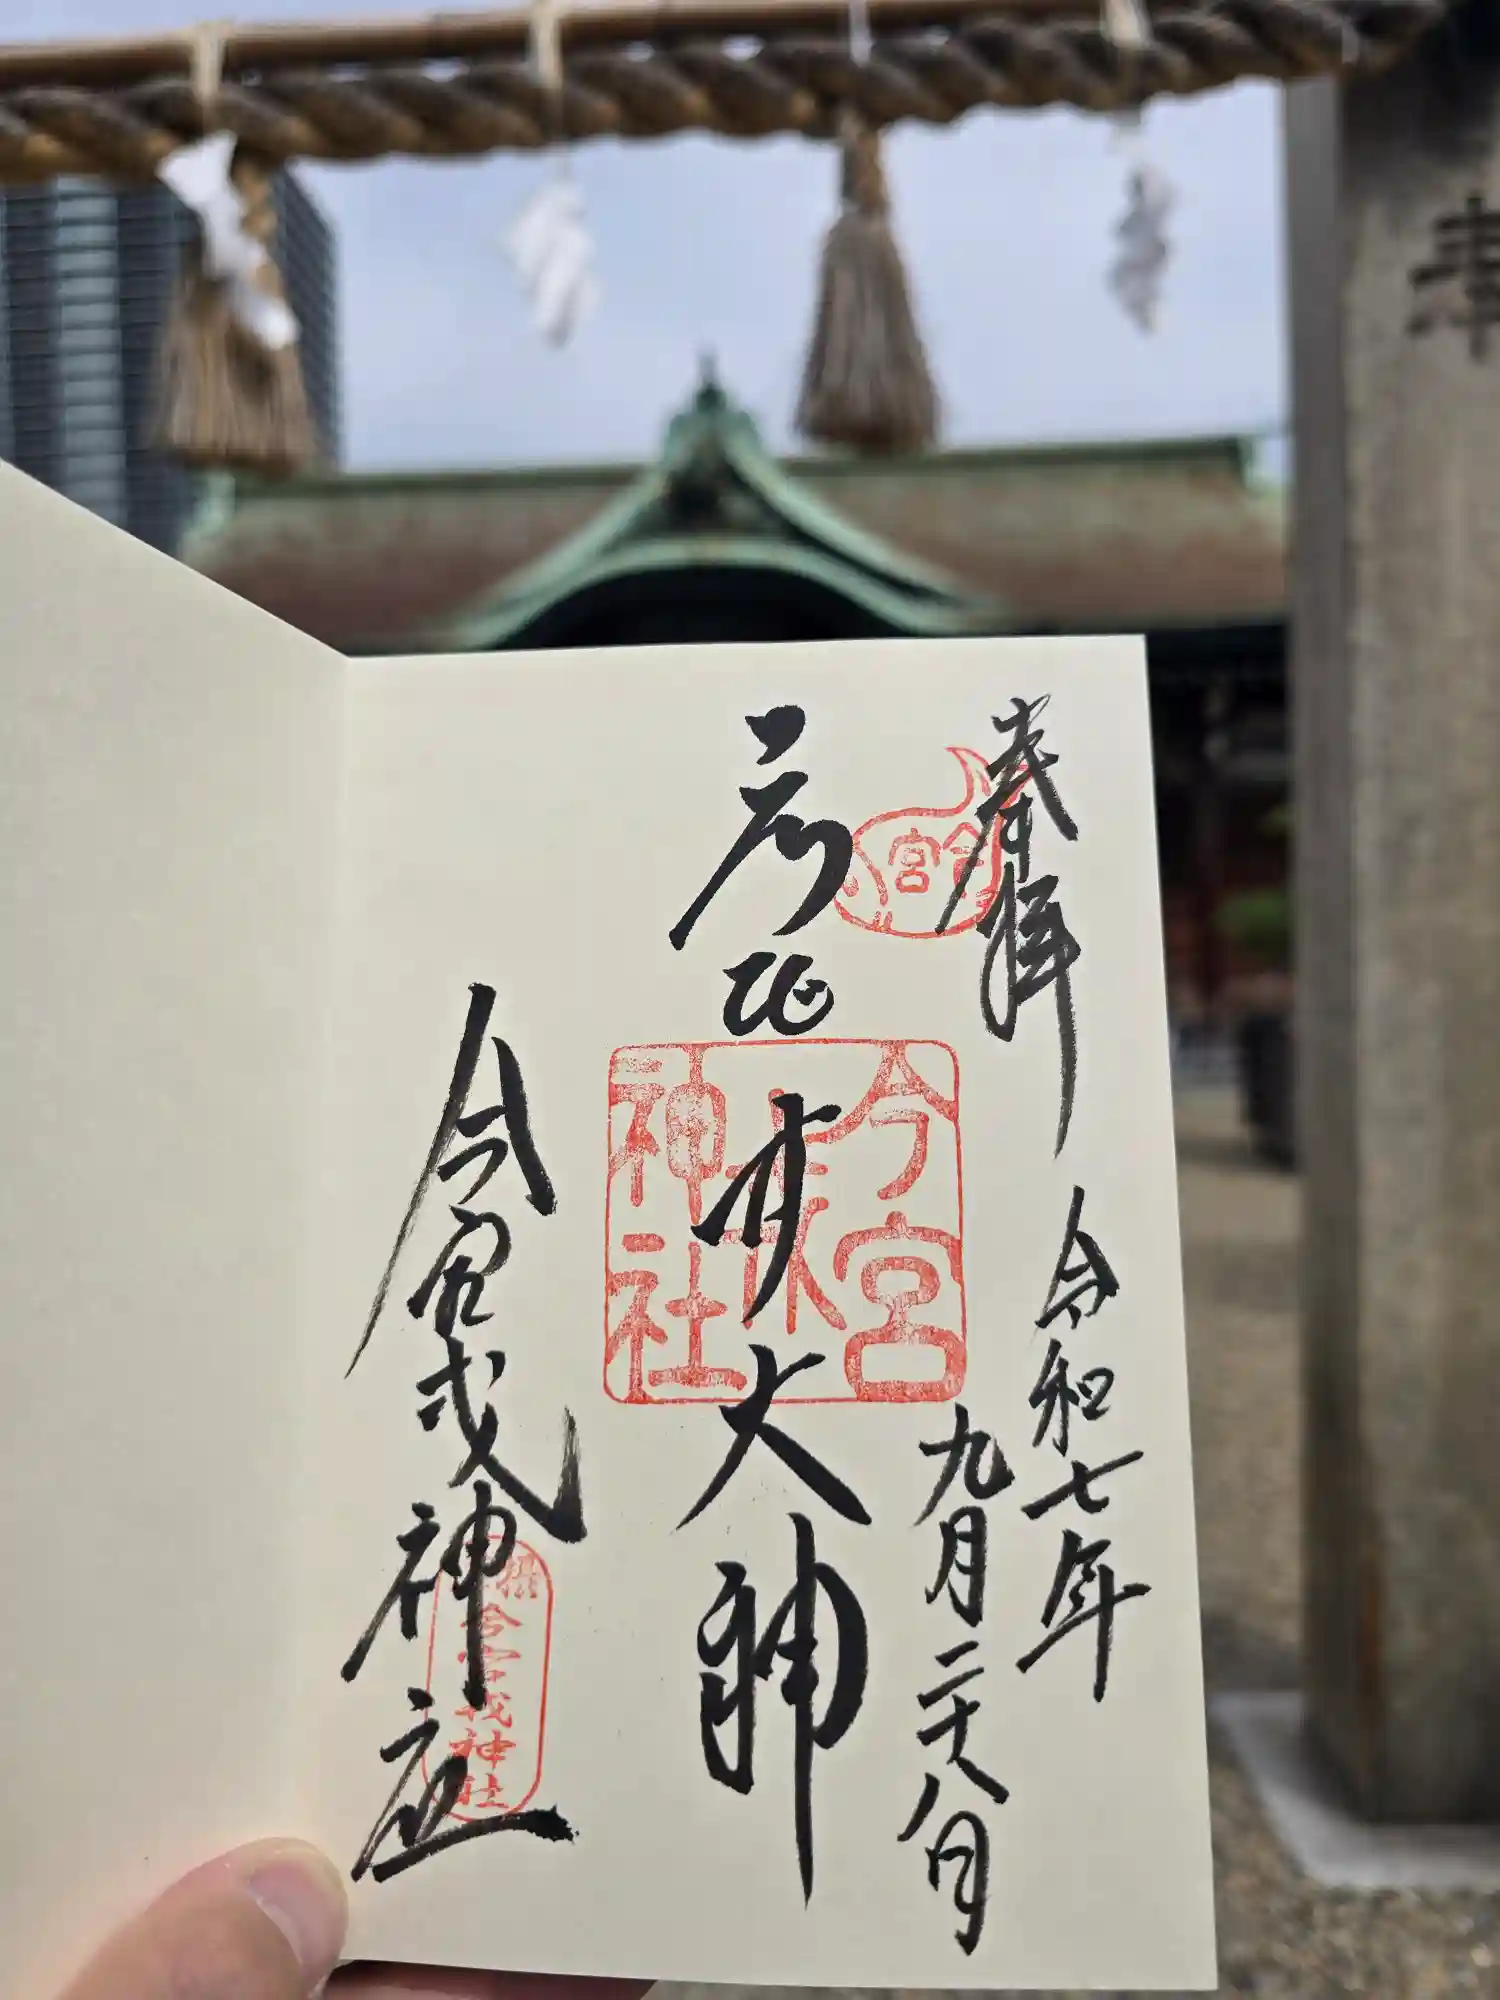 奉拝
令和七年
九月二十八日
大神
今宮戎神社
今宮
今宮戎神社
今宮戎神社
奉